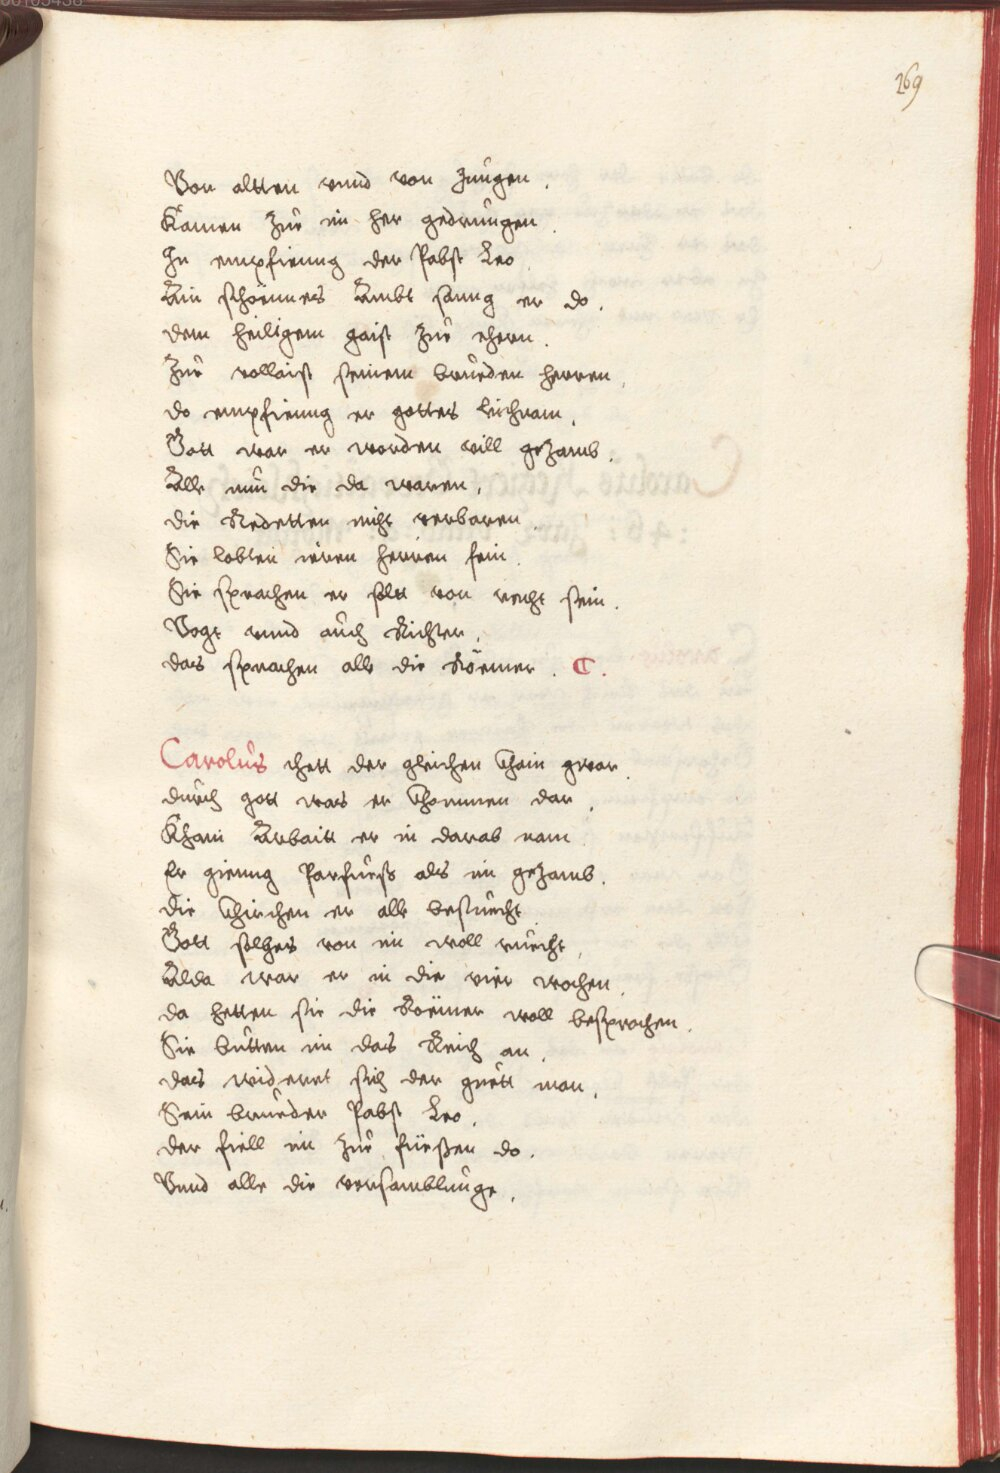 269
Von altten vnnd von Jungen.
Kamen Zur im her gedrungen.
In empfienng der Pabst Leo
Ain schönnes Ambt sanng er do.
dem heiligem gaist Zur ehern.
Zur vollaist seinem brueden herren,
do empfienng er gottes leichnam,
Gott war er worden will gezamb.
Alle nun die da waren,
die Redetten nicht verbaren.
Sie lobten ieren herren sein.
Sie sprachen er solt von recht sein.
Vogt vnnd auch Richter,
das sprachen alle die Römer. C.
Carolus thett der gleichen Khain gwar.
durch gott was er Khommen dar,
Kham Arbaitt er in darab nam
Er gienng Parfuess als im gezamb.
die Khirchen er alle besuecht
Gott solhes von im woll ruecht,
Alda war er in die vier wochen,
da hetten sie die Römer woll besprochen.
Sie butten im das Reich an,
das widerrett sich der guett man,
Sein brueder Pabst Leo,
der fiell im Zur füeßen do.
Vnnd alle die versamblunge,